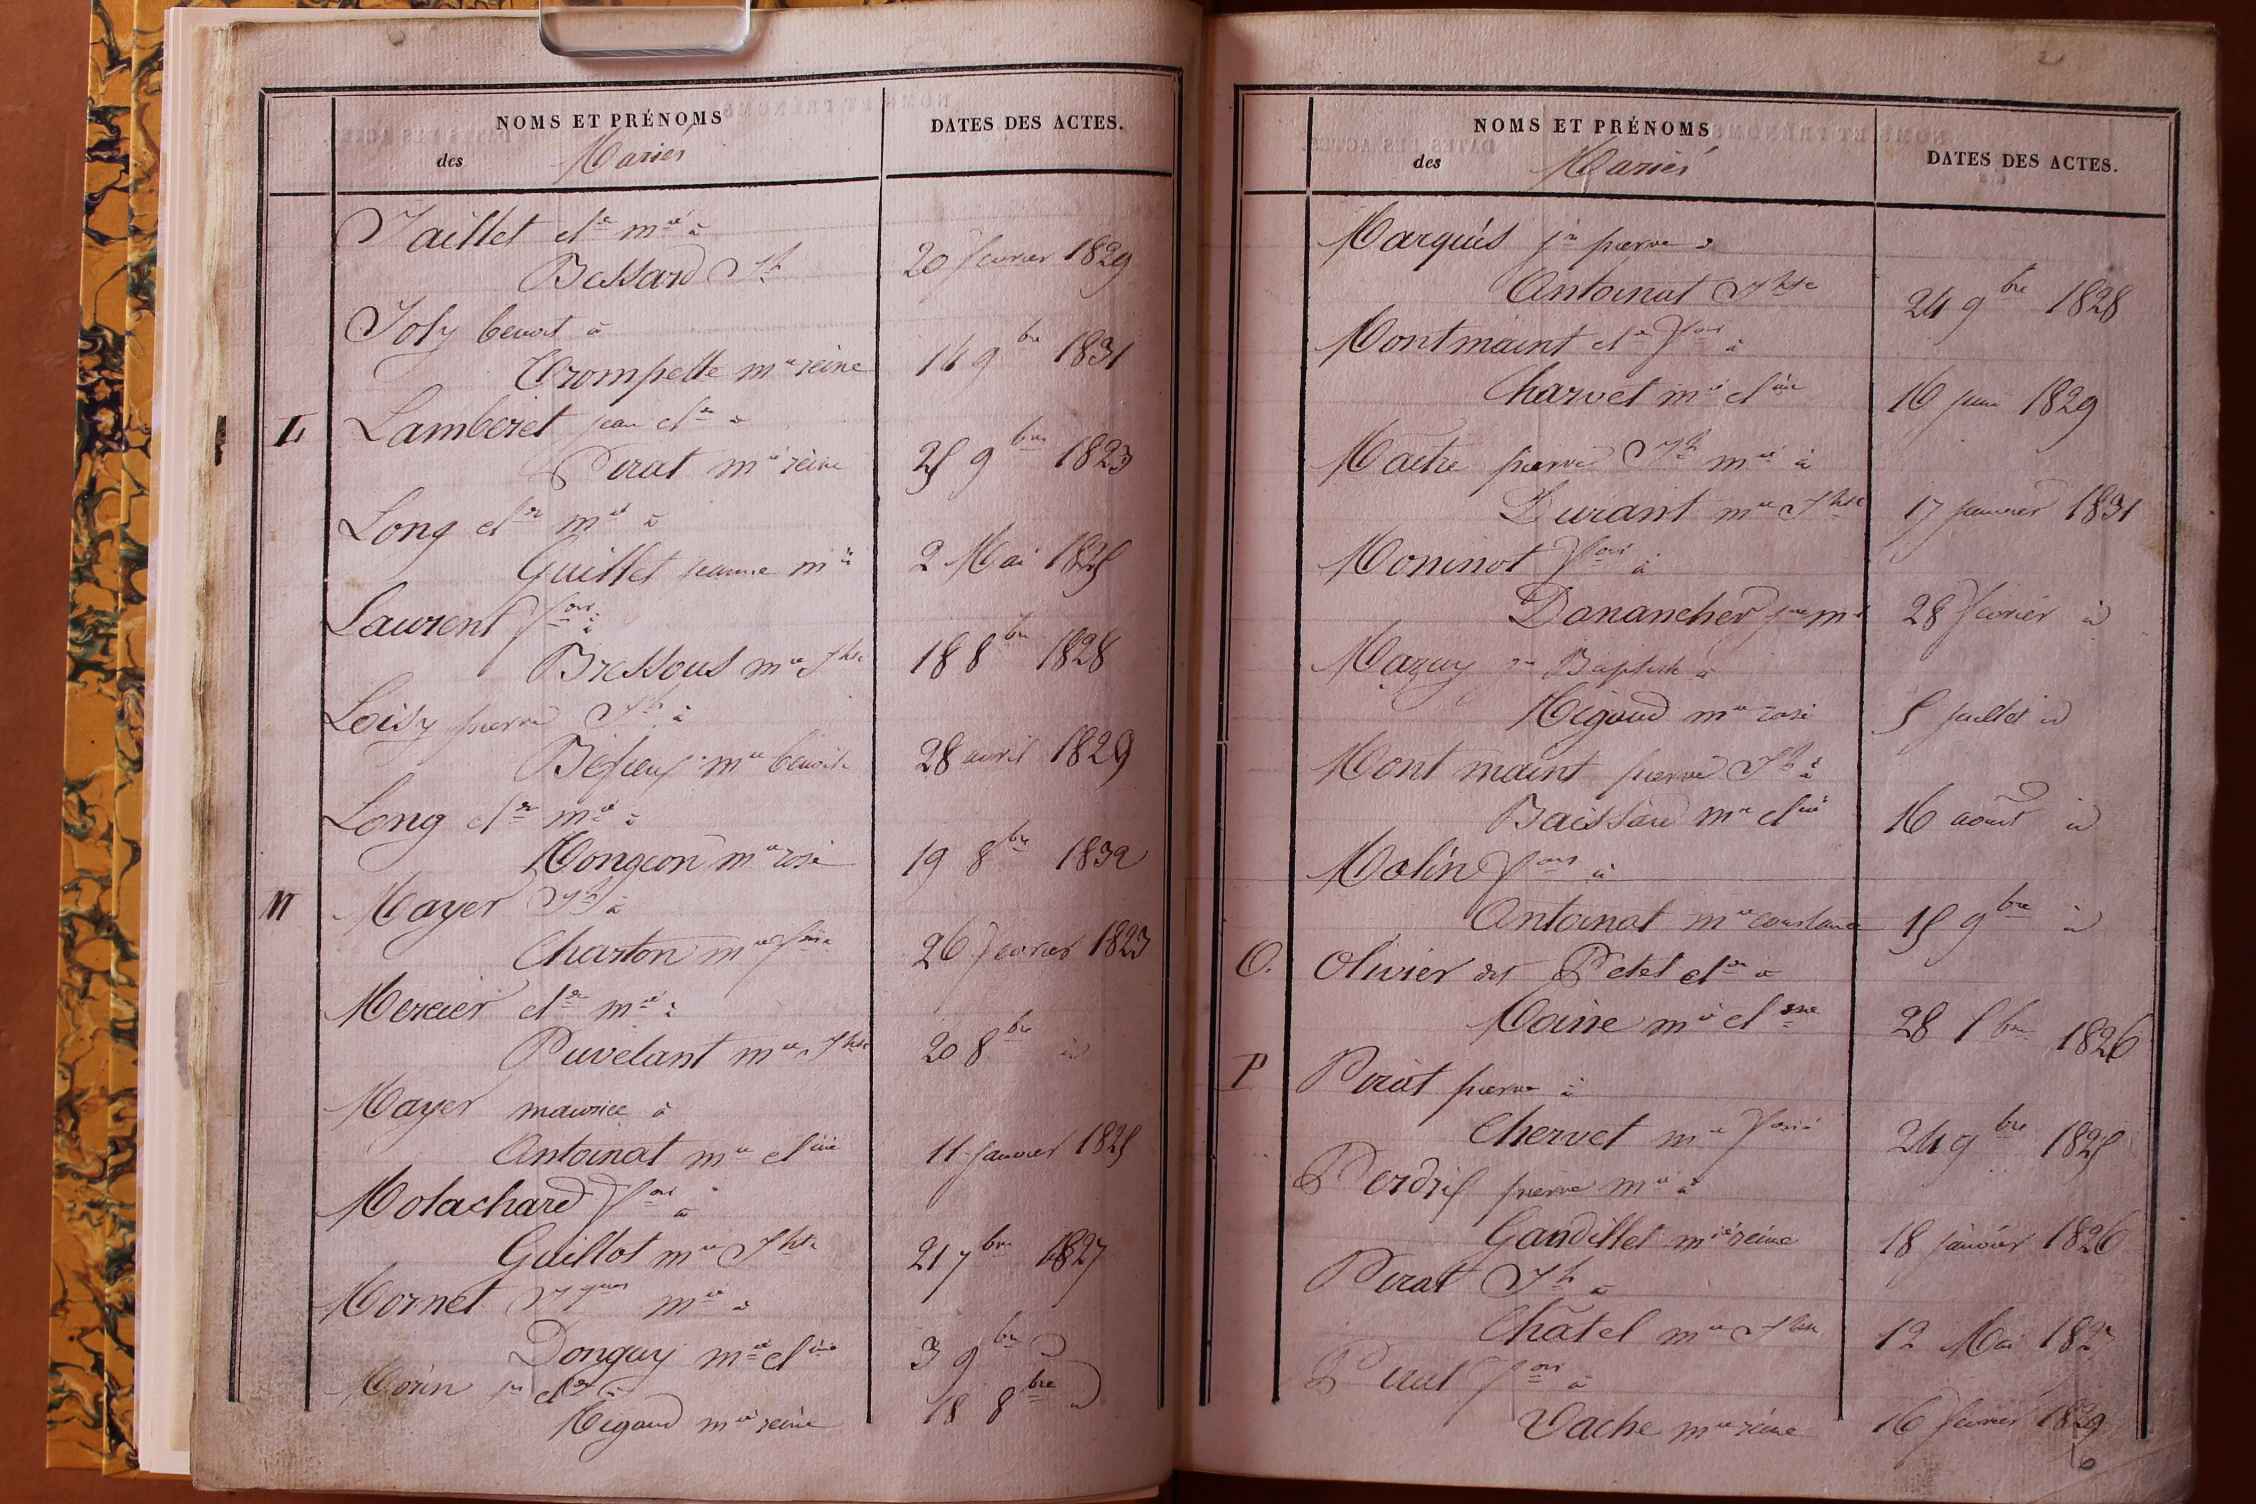 NOMS ET PRÉNOMS
des Mariés
DATES DES ACTES.
Jaillet cl.de m.ie à
Bessard J.h 20 février 1829
Joly benoit à
Trompette m.ie reine 14 9bre 1831
L Lamberet jean cl.de à
Pirat m.ie reine 25 9bre 1823
Long cl.de m.ie à
Guillet jeanne m.ie 2 Mai 1825
Laurent f.ois à
Bressous m.ie J.hte 18 8bre 1828
Loisy pierre J.h à
m.ie benoite 28 avril 1829
Long cl.de m.ie à
Mongeon m.ie rose 19 8bre 1832
M Mayer J.h à
Charton m.ie f.oise 26 février 1823
Mercier cl.de m.ie à
Puvelant m.ie J.hte 20 8bre id
Mayer maurice à
Antoinat m.ie cl.ine 11 janvier 1825
Molachard f.ois à
Guillot m.ie J.hte 21 7bre 1827
Mornet J.ques m.ie à
Donguy m.ie cl.ine 3 9bre id
Morin j.n cl.de à
Migaud m.ie reine 18 8bre id
NOMS ET PRÉNOMS
des Mariés
DATES DES ACTES.
Marquis j.n pierre à
Antoinat J.hte 24 9bre 1828
Montmaint cl.de f.ois à
Charvet m.ie cl.ine 16 juin 1829
Maitre pierre J.h m.ie à
Durant m.ie J.hte 17 janvier 1831
Moninot f.ois à
Donancher j.ne m.ie 28 février id
Mazuy j.n Baptiste à
Migaud m.ie rose 5 juillet id
Mont maint pierre J.h à
Baissard m.ie cl.ine 16 août id
Molin f.ois à
Antoinat m.ie constance 15 9bre id
O. Olivier dit Petet cl.de à
Moine m.ie cl.ine 28 bre 1826
P Pirat pierre à
Chervet m.ie f.oise 24 9bre 1825
Perdrix pierre m.ie à
Gandillet m.ie reine 18 janvier 1826
Pirat J.h à
Châtel m.ie J.hte 12 Mai 1827
Pirat f.ois à
Vache m.ie reine 16 février 1829
6